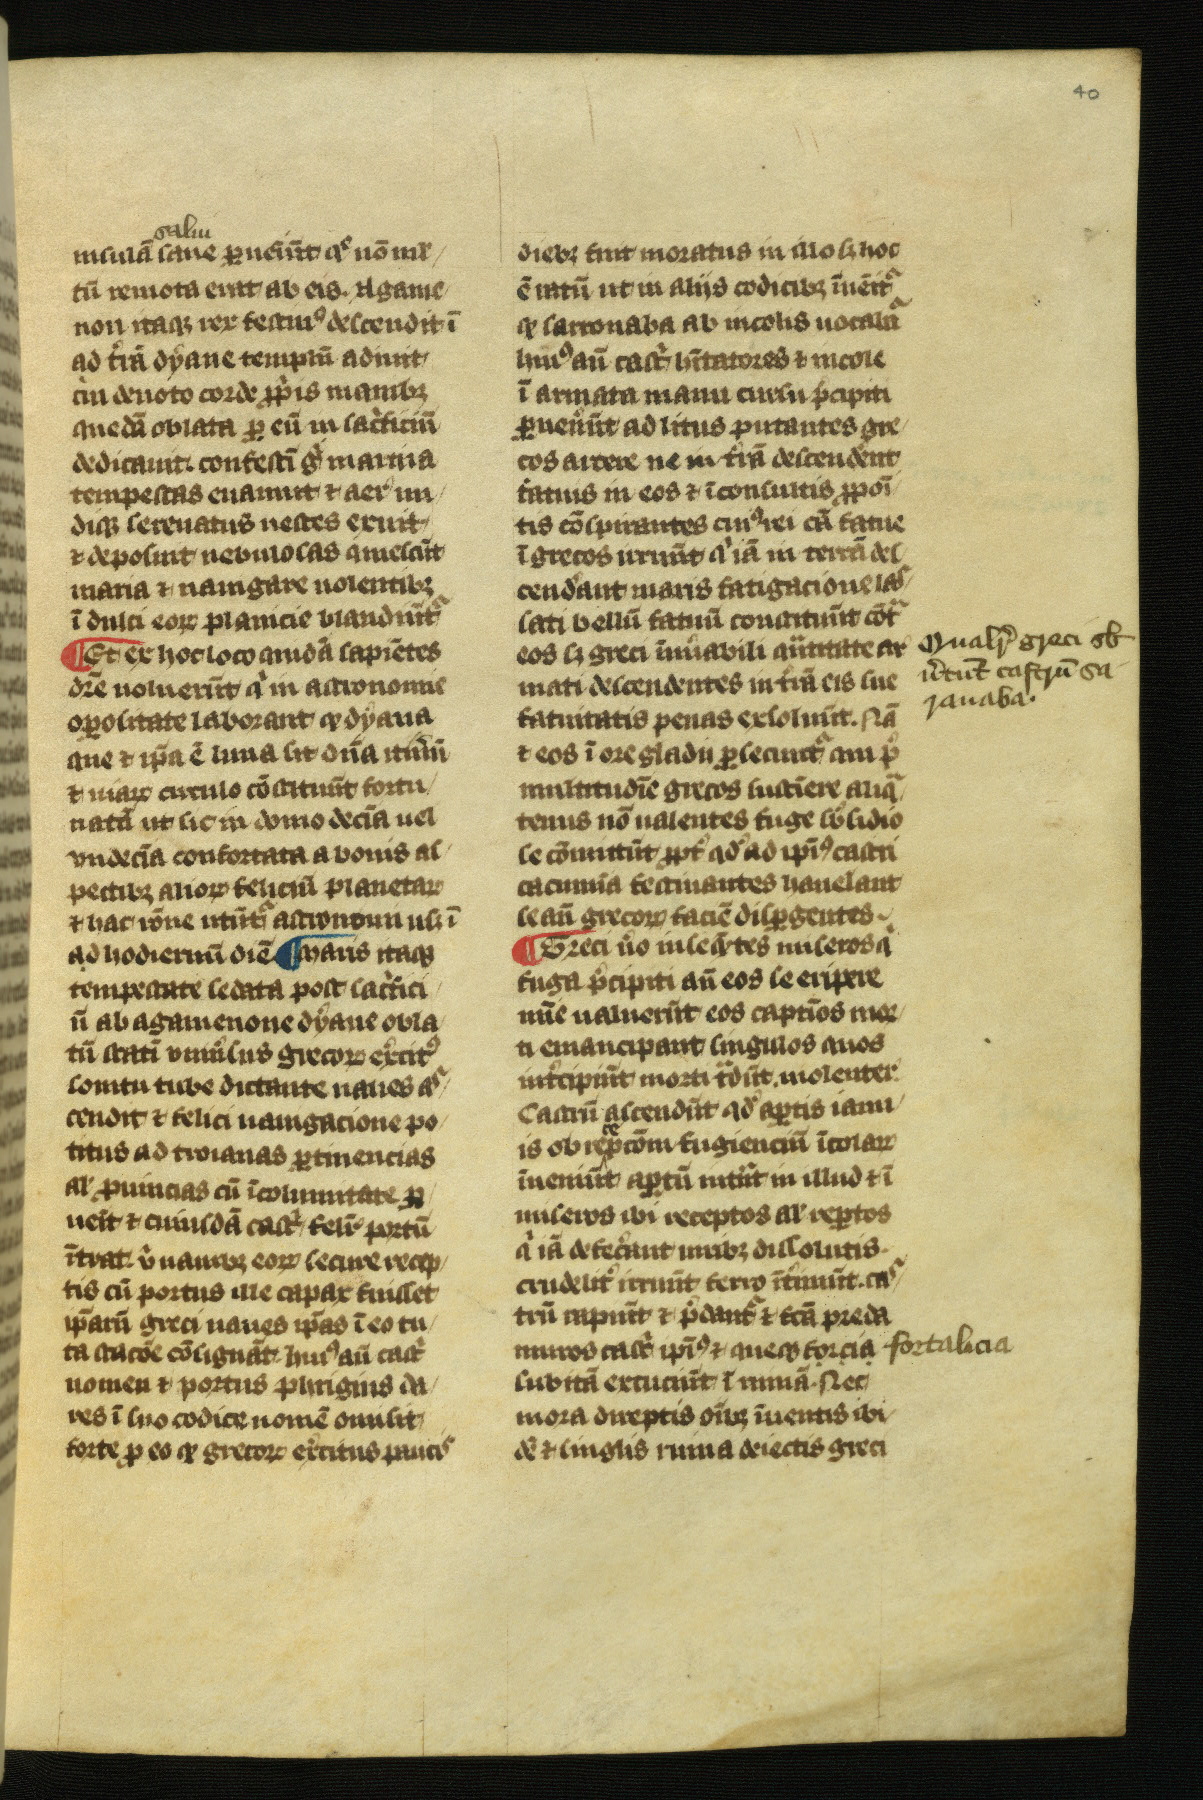 40
saluí
insulā saue ꝑueniūt q̄ nō ml̄
tū remota erat ab eis. Agame
non itaqꝫ rex festiuꝰ descendit ī
ad t̄rā dyane templū adiuit
cū deuoto corde ꝓpis manibꝫ
quedā oblata ꝑ eū in sacͥficiū
dedicauit. confestī gͦ marina
tempestas euanuit ⁊ aer un
diqꝫ serenatus uestes exuit
⁊ deposuit nebulosas quiescūt
maria ⁊ nauigare uolentibꝫ
ī dulci eoꝝ planicie blandiūtᷣ
¶ Et ex hoc loco quidā sapiētes
dr̄e uoluerūt qͥ in astronomie
oꝑositate laborant qꝫ dyana
que ⁊ ip̄a ē luna sit dn̄a itinēū
⁊ uiaꝝ circulo cōstituūt fortu
natā ut sic in domo decīa uel
vndecīa confortata a bonis as
pectibꝫ alioꝝ feliciū planetaꝝ
⁊ hac rōne utūtᷣ astronomi usqꝫ ī
ad hodiernū diē ¶ Maris itaqꝫ
tempestate sedata post sacͥfici
ū ab agamenone dyane obla
tū statī vniūsus grecoꝝ ex̄citꝰ
sonitu tube dictante naues as
cendit ⁊ felici nauigacione po
titus ad troianas ꝑtinencias
al̓ ꝓuincias cū īcolumitate ꝑ
ueīt ⁊ cuiusdā castͥ felī portū
ītrat. v̓ nauibꝫ eoꝝ secure recep
tis cū portus ille capax fuisset
ip̄arū greci naues ip̄as ī eo tu
ta stacōe cōsignāt. huiꝰ aū castͥ
nomen ⁊ portus phrigius da
res ī suo codice nomē omisit
forte ꝓ eo qꝫ grecoꝝ ex̄citus paucis
diebꝫ fuit moratus in illo sꝫ hoc
ē ratū ut in aliis codicibꝫ īueītᷣ
qꝫ sarronaba ab incolis uocatᷣ
huiꝰ aū castͥ hītatores ⁊ incole
ī armata manu cursu p̄cipiti
ꝑuenūt ad litus putantes gre
cos arcere ne in t̄rā descendent
fatuis in eos ⁊ īconsultis ꝓpoī
tis cōspirantes cuiꝰ rei cā fatue
ī grecos irruūt qͥ iā in terrā des
cend̓ant maris fatigacione las
sati bellū fatuū constituūt cōtᷓ
eos sꝫ greci īnūabili q̄ntitate ar
mati descendentes in t̄rā eis sue
fatuitatis penas exsoluūt. Nā
⁊ eos ī ore gladii ꝑsecuntᷣ qui p̓
multitudīe grecos sustīere aliqᷓ
tenus nō ualentes fuge sb̓sidio
se cōmittūt ꝓpt̓ qd̓ ad ip̄iꝰ castri
cacumīa festinantes hanelant
se aū grecoꝝ faciē dispͥgentes.
¶ Greci ūo inseqͥtes miseros qͥ
fuga p̄cipiti aū eos se eripere
mīe ualuerūt eos captīos mor
ti emancipant singulos quos
int̓cipiūt morti tᷓdūt. uiolenter.
Castrū ascendūt qd̓ aꝑtis ianu
is ob recepcōm fugienciū īcolaꝝ
īueniūt aꝑtū intͣūt in illud ⁊ ī
miseros ibi receptos al̓ reꝑtos
qͥ iā defec̓ant uiribꝫ dissolutis.
crudelit̓ irruūt ferro īt̓imūt. cas
trū capiūt ⁊ p̄dantᷣ ⁊ fc̄a preda
muros castͥ ip̄iꝰ ⁊ queqꝫ forcia
subitā excuciūt ī ruinā. Nec
mora direptis oībꝫ īuentis ibi
dē ⁊ singlis ruina deiectis greci
Qualr̄ greci sb̓
ūtūt castrū sa
ranaba.
fortalicia